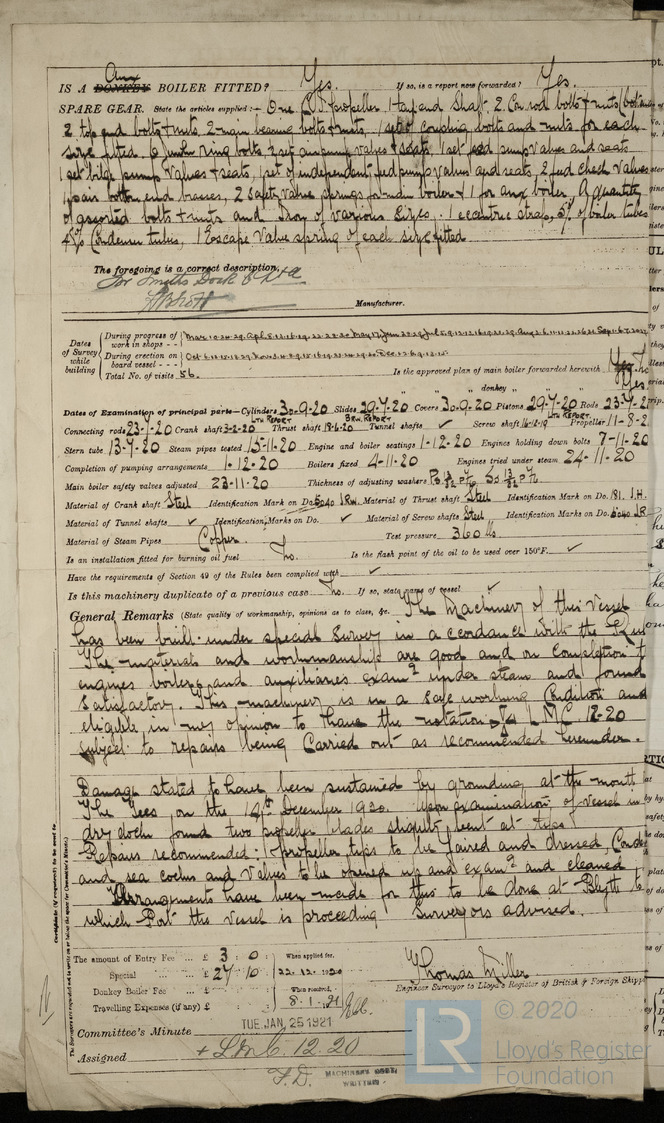 Aux
IS A DONKEY BOILER FITTED? Yes. If so, is a report now forwarded? Yes.
SPARE GEAR. State the articles supplied:— One C.I. propeller 1 tail end shaft. 2 Con rod bolts & nuts (bottom
2 top end bolts & nuts, 2 main bearing bolts & nuts, 1 set of coupling bolts and nuts for each
size fitted, 6 junk ring bolts 2 set air pump valves & seats 1 set feed pump valves and seats
1 set bilge pump valves & seats, 1 set of independent feed pump valves and seats, 2 feed check valves
1 pair bottom end brasses, 2 safety valve springs for main boiler & 1 for aux boiler, A quantity
of assorted bolts & nuts and Iron of various sizes. 1 eccentric strap, 3% of boiler tubes
4% Condenser tubes, 1 Escape Valve spring of each size fitted
The foregoing is a correct description,
For Smiths Dock Co Ltd
Manufacturer.
Dates of Survey while building
During progress of work in shops - -
During erection on board vessel - - -
Total No. of visits 56.
Is the approved plan of main boiler forwarded herewith
" " " donkey " " " Yes
Dates of Examination of principal parts—Cylinders 30-9-20 Slides 29-7-20 Covers 30-9-20 Pistons 29-7-20 Rods 23-7-2
Connecting rods 23-7-20 Crank shaft 3-2-20 Thrust shaft 18-6-20 Tunnel shafts ✓ Screw shaft Propeller 11-8-2
Stern tube 13-7-20 Steam pipes tested 15-11-20 Engine and boiler seatings 1-12-20 Engines holding down bolts 7-11-20
Completion of pumping arrangements 1-12-20 Boilers fixed 4-11-20 Engines tried under steam 24-11-20
Main boiler safety valves adjusted 23-11-20 Thickness of adjusting washers
Material of Crank shaft Steel Identification Mark on Do. 5040 J.R.W. Material of Thrust shaft Steel Identification Mark on Do. 181. J.H.
Material of Tunnel shafts ✓ Identification Marks on Do. ✓ Material of Screw shafts Steel Identification Marks on Do. 5040 J.R
Material of Steam Pipes Copper Test pressure 360 lbs
Is an installation fitted for burning oil fuel No. Is the flash point of the oil to be used over 150°F. ✓
Have the requirements of Section 49 of the Rules been complied with ✓
Is this machinery duplicate of a previous case No. If so, state name of vessel ✓
General Remarks (State quality of workmanship, opinions as to class, &c. The Machinery of this Vessel
has been built under special Survey in accordance with the Rules
The materials and workmanship are good and on completion the
engines boilers and auxiliaries exam'd under steam and found
satisfactory. This machinery is in a safe working Condition and
eligible in my opinion to have the notation + L M C 12-20
subject to repairs being carried out as recommended hereunder.
Damage stated to have been sustained by grounding at the mouth
The Tees, on the 14th December 1920. Upon examination of vessel in
dry dock found two propeller blades slightly bent at tips.
Repairs recommended:- propeller tips to be faired and dressed, Conden
and sea cocks and valves to be opened up and exam'd and cleaned
Arrangements have been made for this to be done at Blyth to
which Port the vessel is proceeding Surveyors advised.
The amount of Entry Fee ... £ 3 : 0 : When applied for,
Special ... £ 27 : 10 : 22.12.1920
Donkey Boiler Fee ... £ : : When received,
Travelling Expenses (if any) £ : : 8.1.21
Thomas Miller
Engineer Surveyor to Lloyd's Register of British & Foreign Shipp
Committee's Minute TUE. JAN. 25 1921
Assigned + L.M.C. 12.20
F.D.
MACHINERY CERT. WRITTEN
© 2020
LR
Lloyd's Register
Foundation